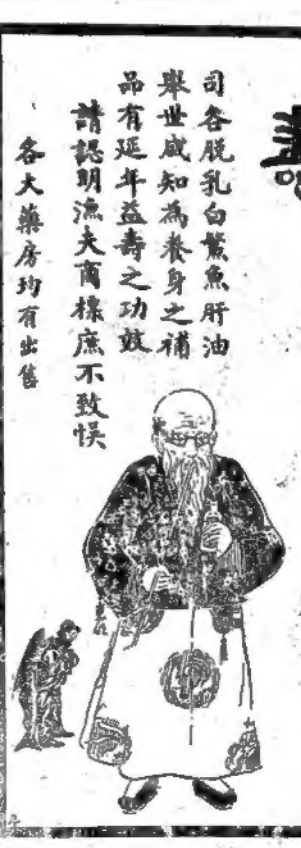 司各脱乳白鰵魚肝油
舉世咸知為養身之補
品有延年益壽之功效
請認明漁夫商標庶不致悞
各大藥房均有出售